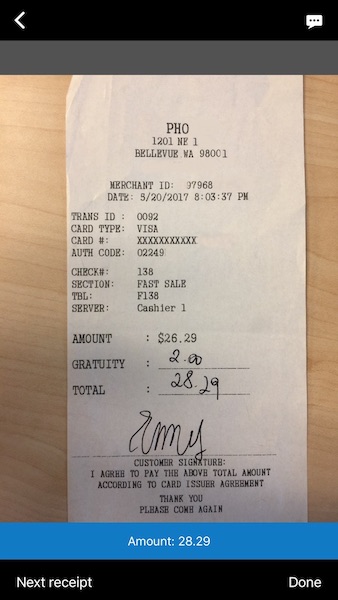 PHO
1201 NE 1
BELLEVUE WA 98001
MERCHANT ID: 97968
DATE: 5/20/2017 8:03:37 PM
TRANS ID : 0092
CARD TYPE: VISA
CARD #: XXXXXXXXXXX
AUTH CODE: 02249
CHECK#: 138
SECTION: FAST SALE
TBL: F138
SERVER: Cashier 1
AMOUNT : $26.29
GRATUITY : 2.00
TOTAL : 28.29
Emmy
CUSTOMER SIGNATURE:
I AGREE TO PAY THE ABOVE TOTAL AMOUNT
ACCORDING TO CARD ISSUER AGREEMENT
THANK YOU
PLEASE COME AGAIN
Amount: 28.29
Next receipt Done